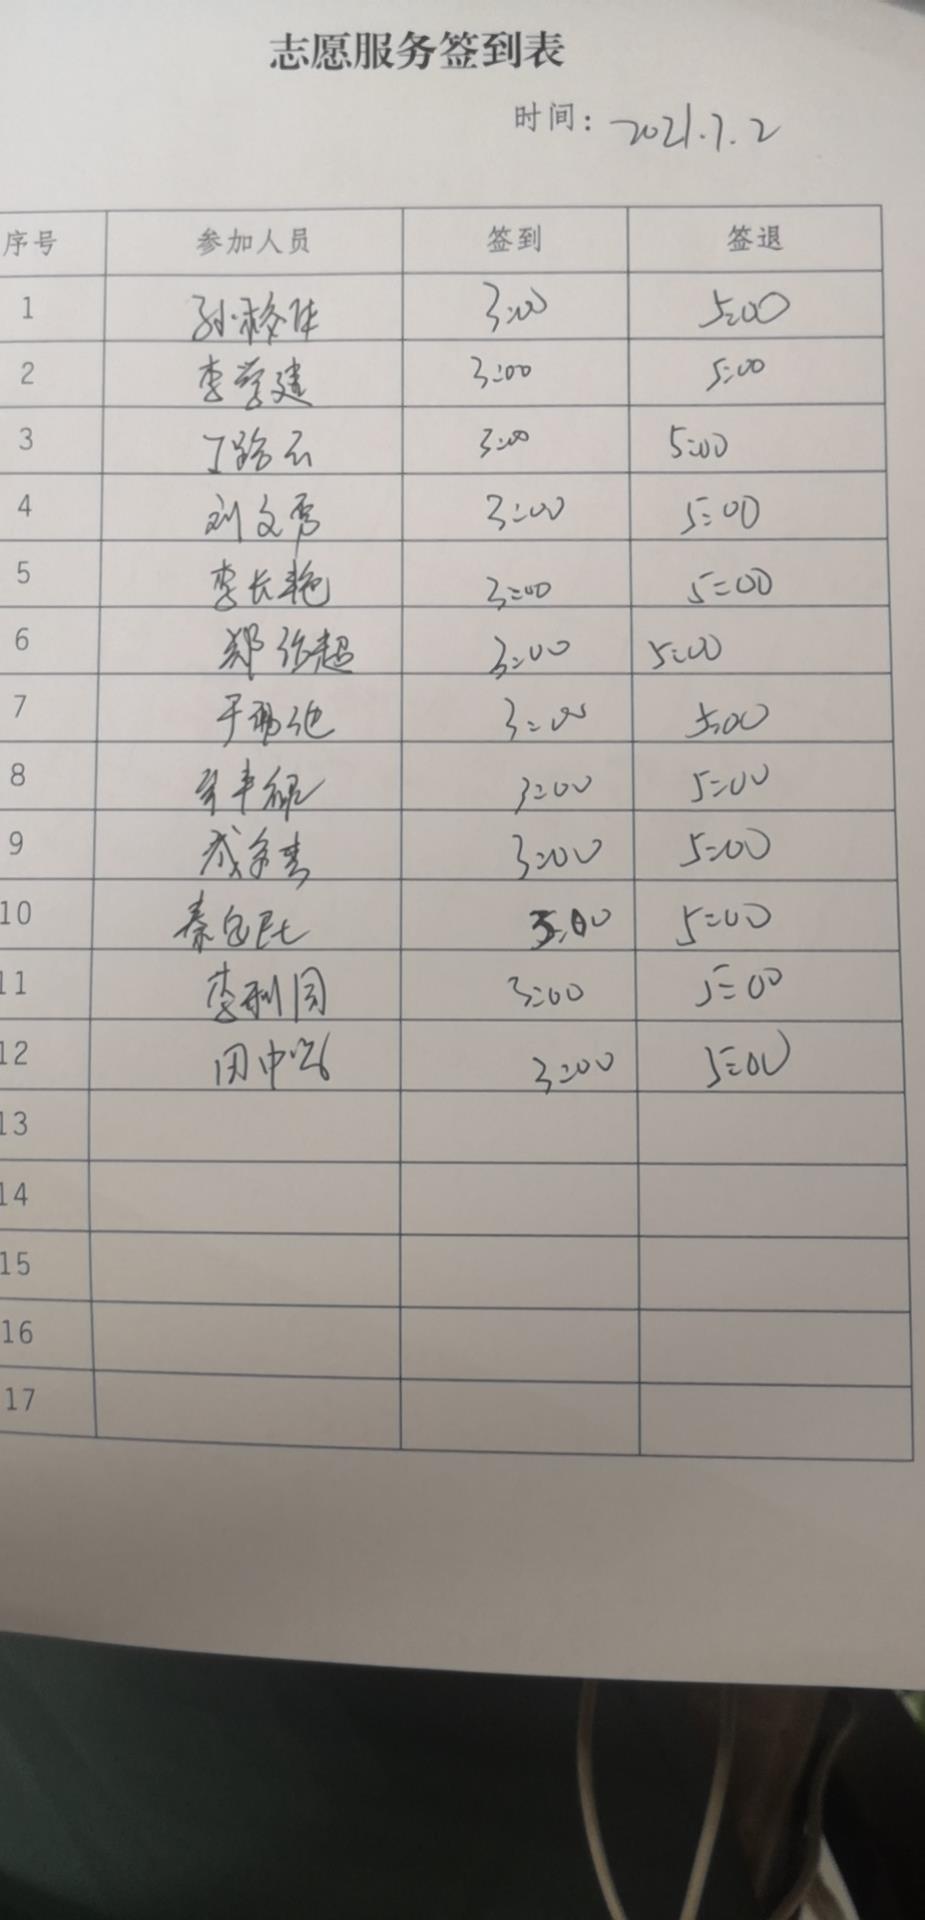 志愿服务签到表
时间: 2021.7.2
序号 参加人员 签到 签退
1 3:00 5:00
2 李学建 3:00 5:00
3 丁路云 3:00 5:00
4 刘文秀 3:00 5:00
5 李长艳 3:00 5:00
6 郑 超 3:00 5:00
7 于 3:00 5:00
8 3:00 5:00
9 成 3:00 5:00
10 秦 3:00 5:00
11 李利国 3:00 5:00
12 田中 3:00 5:00
13
14
15
16
17